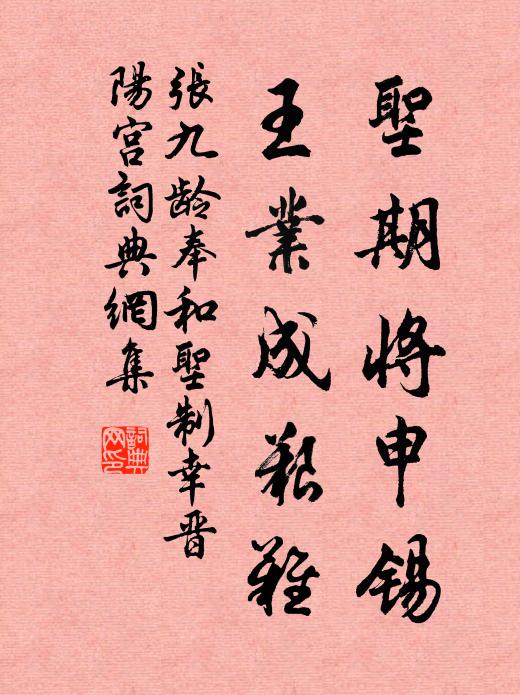 聖期將申錫
王業成艱難
張九龄奉和聖制幸晉
陽宮詞典網集
詞典
网印